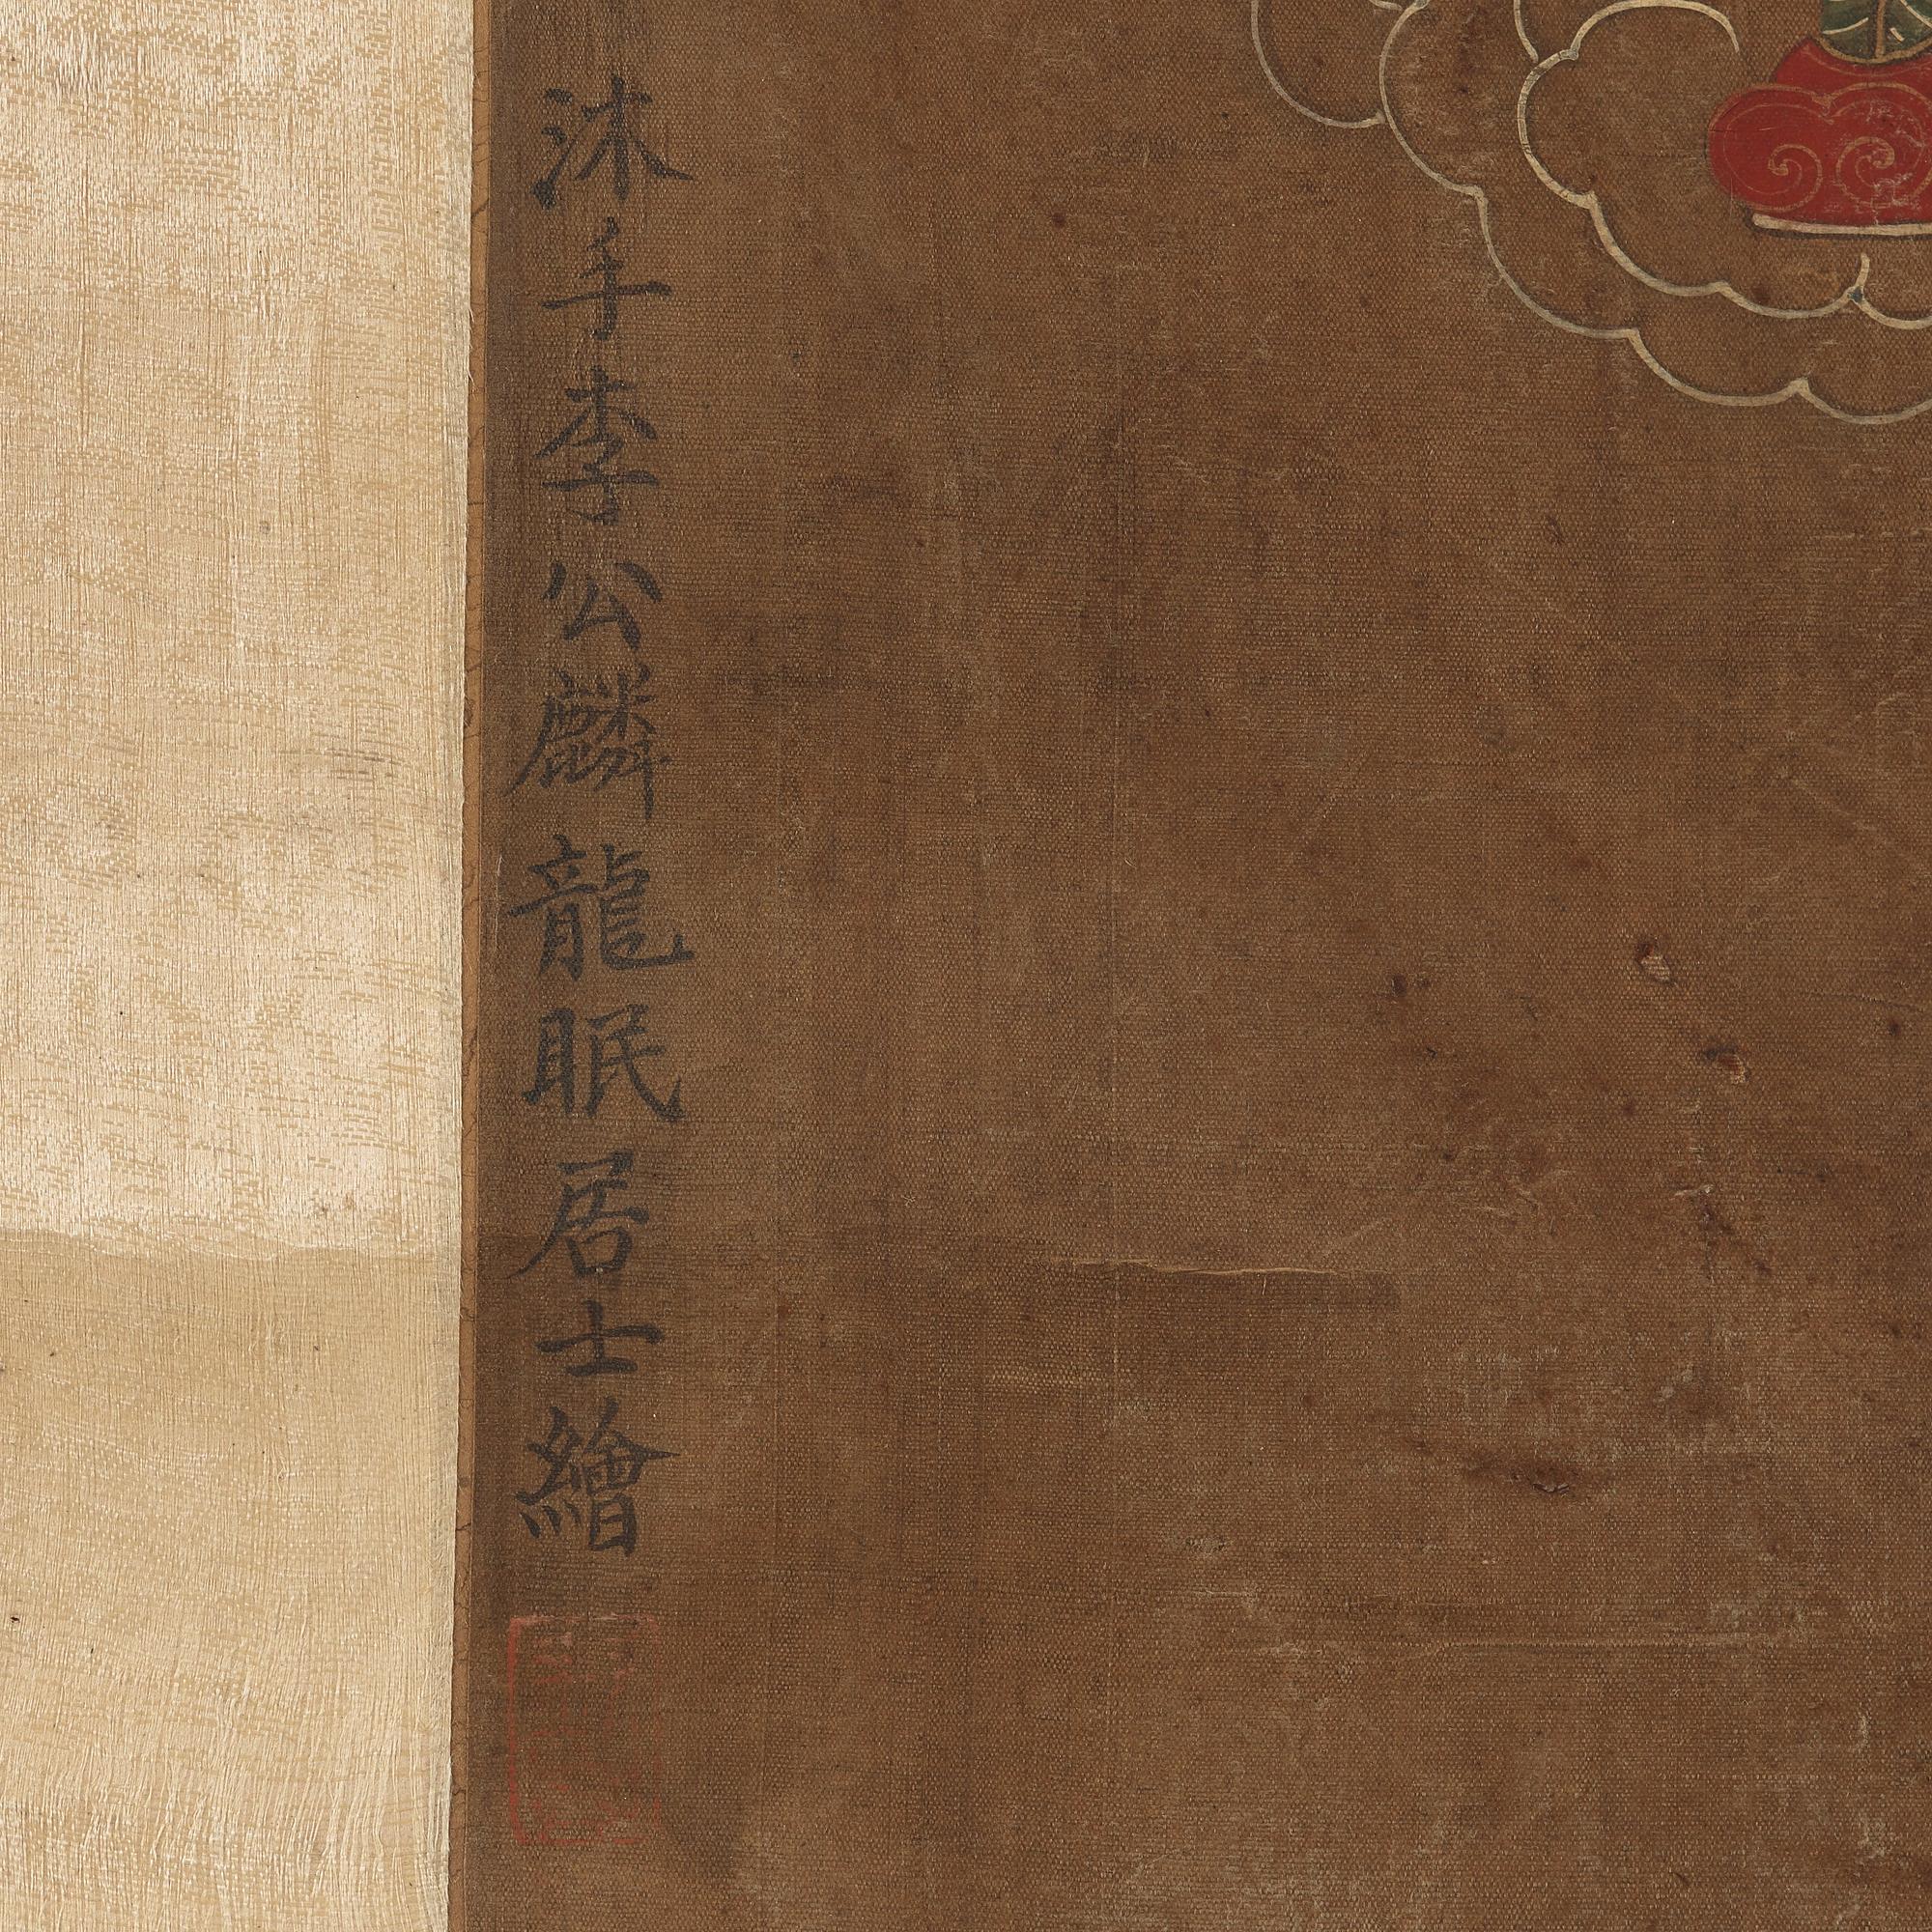 沐手李公麟龍眠居士繪